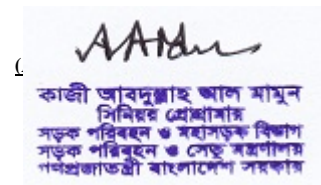 (
কাজী আবদুল্লাহ আল মামুন
সিনিয়র প্রোগ্রামার
সড়ক পরিবহন ও মহাসড়ক বিভাগ
সড়ক পরিবহন ও সেতু মন্ত্রণালয়
গণপ্রজাতন্ত্রী বাংলাদেশ সরকার